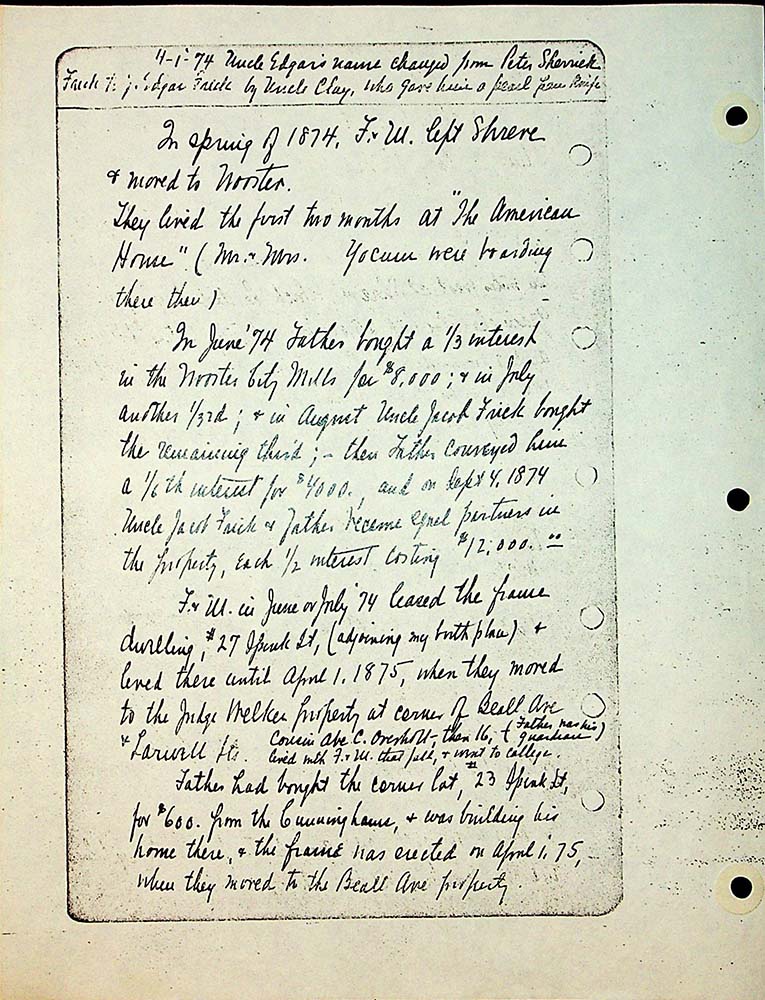 4-1-74 Uncle Edgar's name changed from Peter Sherrick
Frick to J. Edgar Frick by Uncle Clay, who gave him a pearl pen knife
In spring of 1874, F. & M. left Shreve
& moved to Wooster.
They lived the first two months at "The American
House" (Mr. & Mrs. Yocum were boarding
there then)
In June '74 Father bought a 1/3 interest
in the Wooster City Mills for $8,000; & in July
another 1/3rd; & in August Uncle Jacob Frick bought
the remaining third; - then Father conveyed him
a 1/6th interest for $4000., and on Sept 4, 1874
Uncle Jacob Frick & Father became equal partners in
the property, each 1/2 interest costing $12,000.
F. & M. in June or July '74 leased the frame
dwelling, #27 Spink St, (adjoining my birth place) &
lived there until April 1, 1875, when they moved
to the Judge Welker property at corner of Beall Ave
& Larwill Sts. Cousin Abe C. Overholt, then 16, (Father was his guardian)
lived with F. & M. that fall, & went to college.
Father had bought the corner lot, #23 Spink St,
for $600. from the Cunninghams, & was building his
home there, & the frame was erected on April 1, 75,
when they moved to the Beall Ave property.